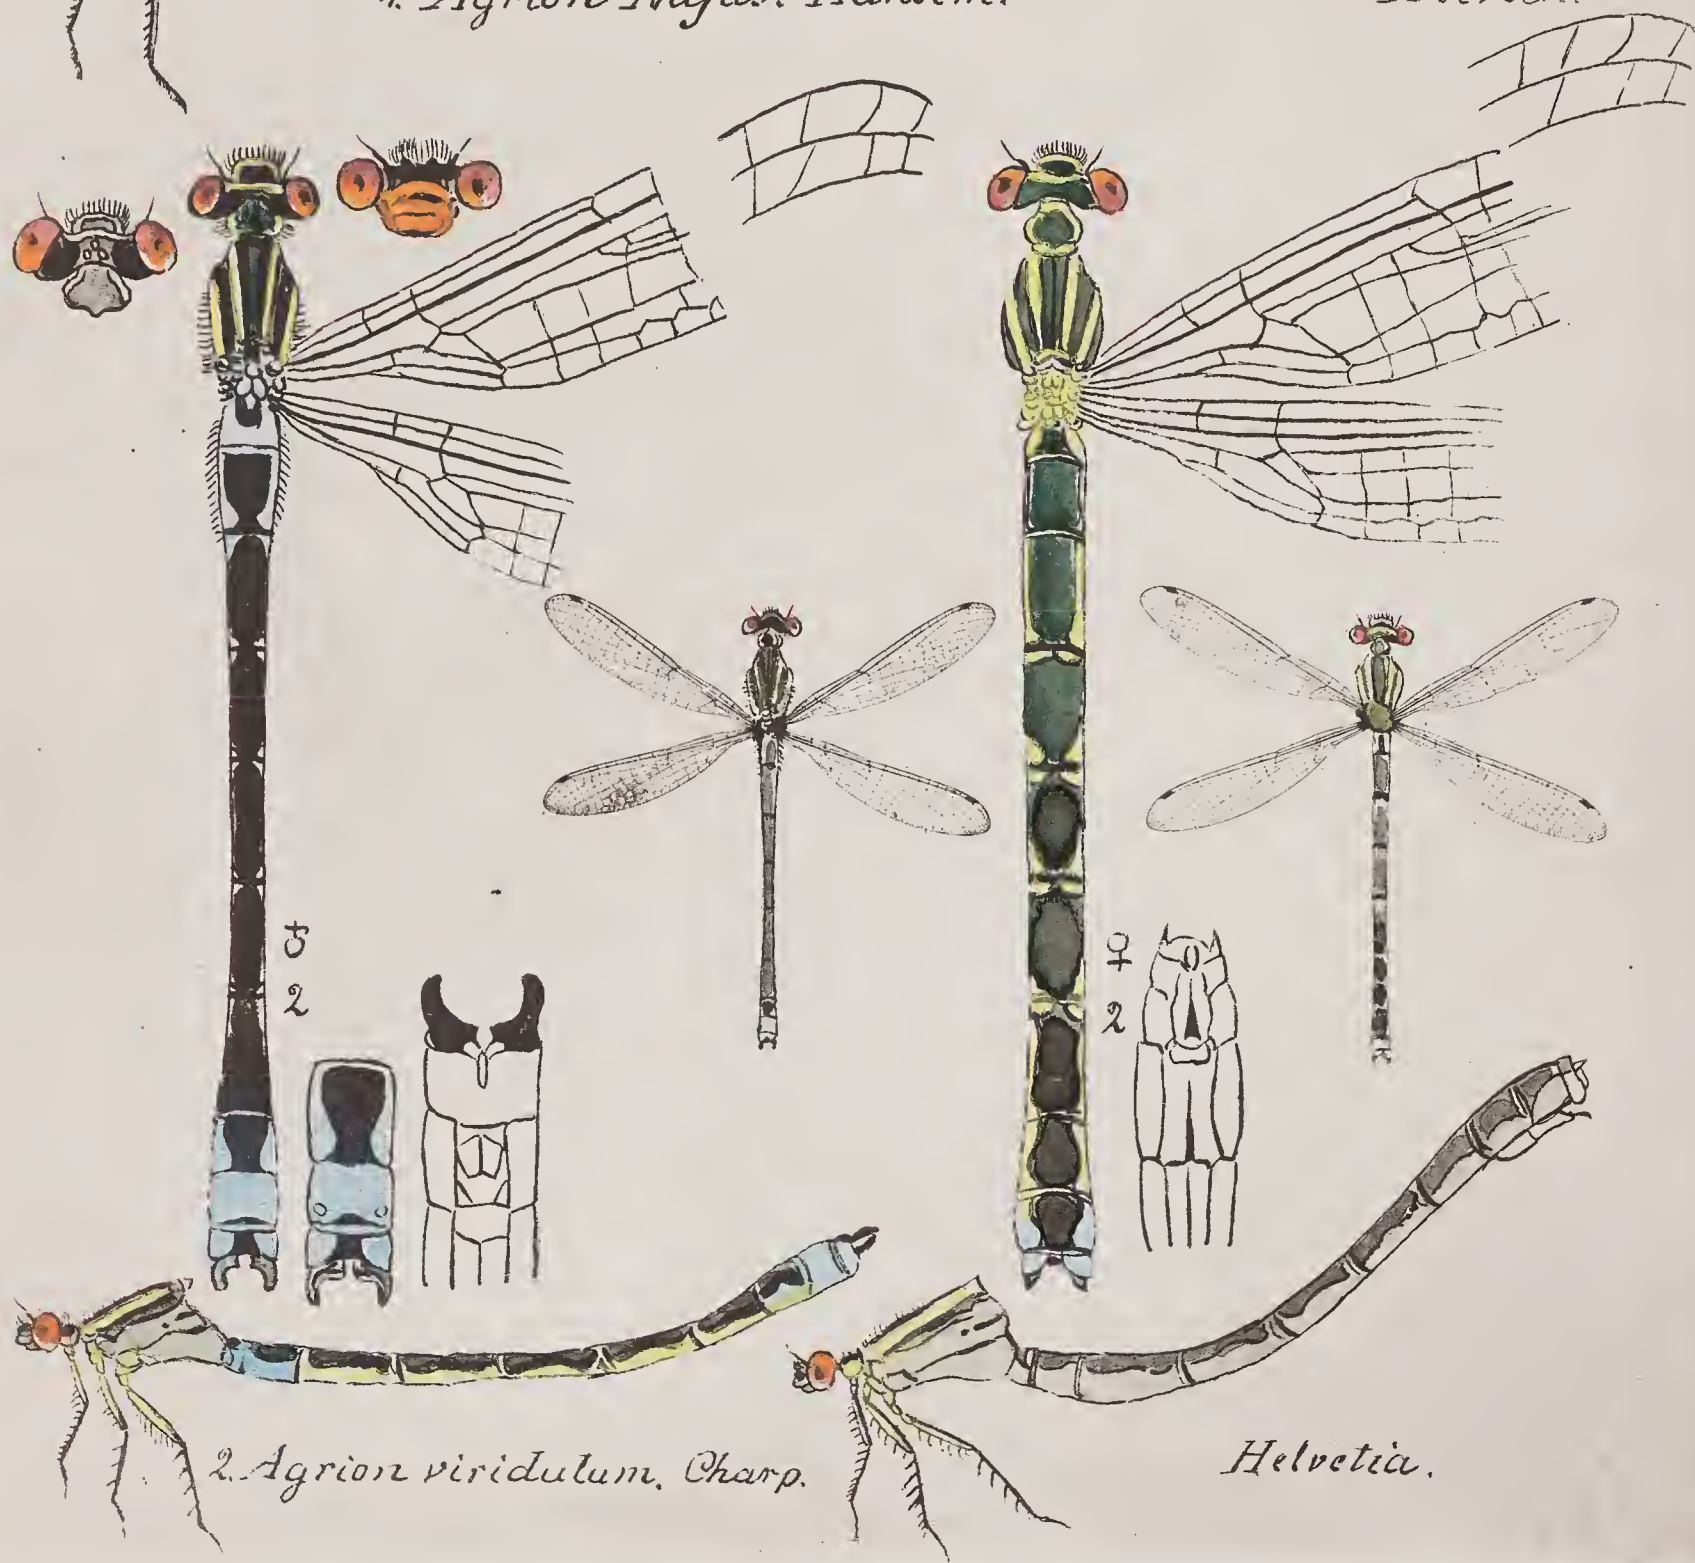 1. Agrion
♂
2
♀
2
2. Agrion viridulum. Charp.
Helvetia.